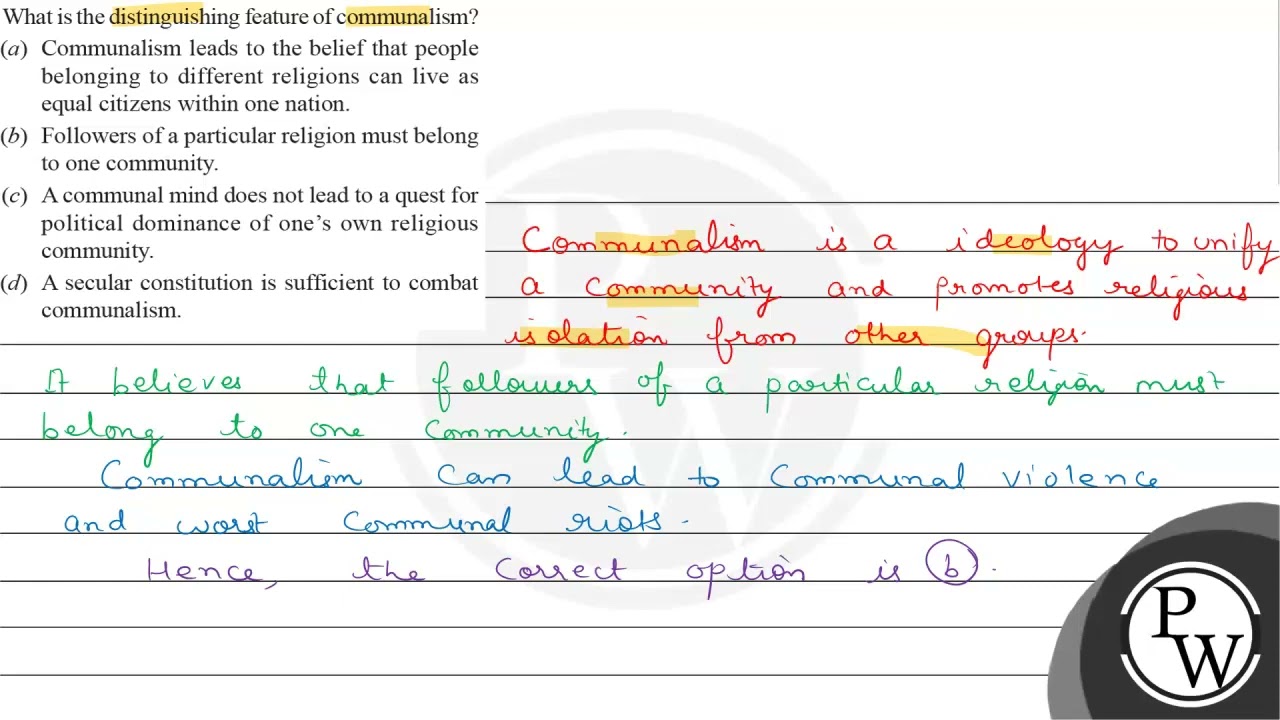 What is the distinguishing feature of communalism?
(a) Communalism leads to the belief that people
belonging to different religions can live as
equal citizens within one nation.
(b) Followers of a particular religion must belong
to one community.
(c) A communal mind does not lead to a quest for
political dominance of one's own religious
community.
(d) A secular constitution is sufficient to combat
communalism.
Communalism is a ideology to unify
a community and promotes religious
isolation from other groups.
It believes that followers of a particular religion must
belong to one community.
Communalism can lead to communal violence
and worst communal riots.
Hence, the correct option is b.
P
W